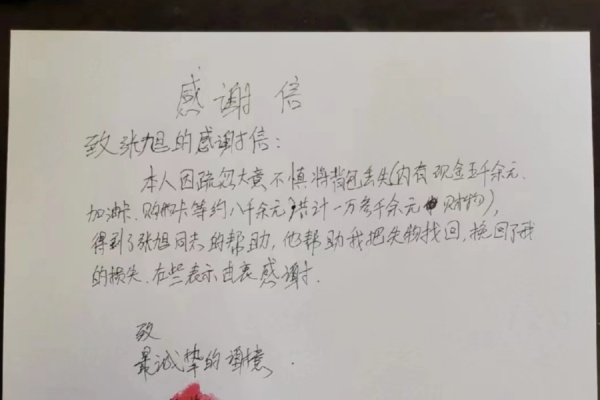 感谢信
致张旭的感谢信：
本人因疏忽大意不慎将背包丢失（内有现金五千余元、
加油卡、购物卡等约八千余元，共计一万多千余元 财物），
得到了张旭同志的帮助，他帮助我把失物找回，挽回了我
的损失，在些表示由衷感谢．
致
最诚挚的谢意．